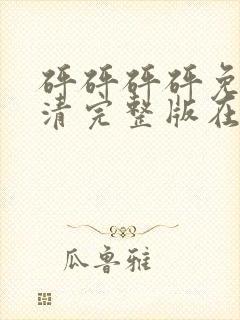 砰砰砰砰免
清完整版在
瓜鲁雅